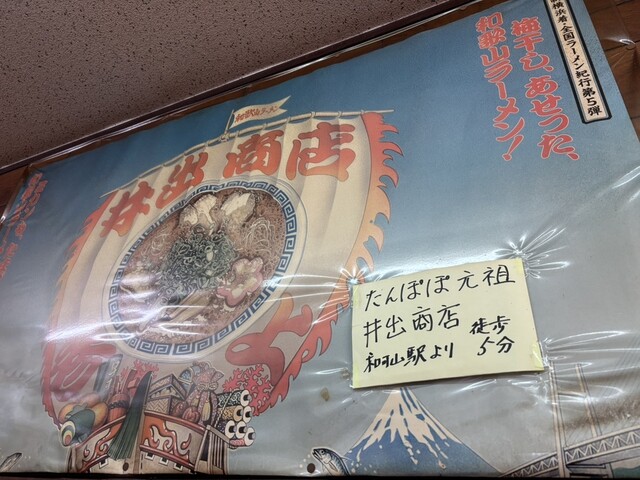 新横浜着・全国ラーメン紀行第5弾
梅干し、あせった、
和歌山ラーメン!
和歌山ラーメン
井出商店
たんぽぽ元祖
井出商店 徒歩
和可山駅より 5分